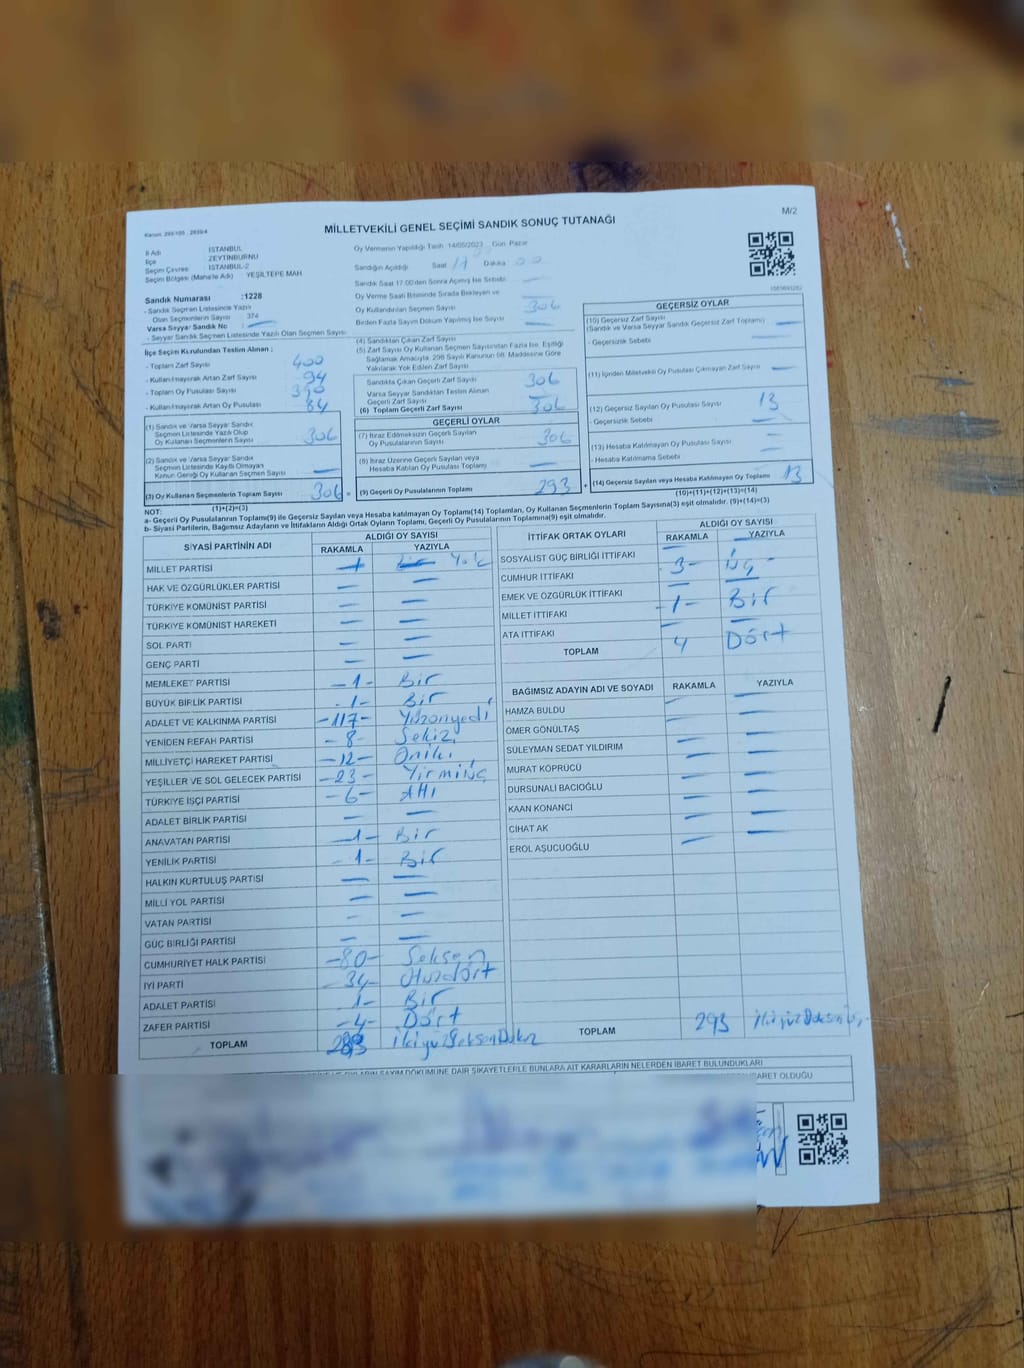 M/2
Kanun: 298/105 , 2839/4
MİLLETVEKİLİ GENEL SEÇİMİ SANDIK SONUÇ TUTANAĞI
İl Adı : İSTANBUL
İlçe : ZEYTİNBURNU
Seçim Çevresi : İSTANBUL-2
Seçim Bölgesi (Mahalle Adı) : YEŞİLTEPE MAH.
Sandık Numarası :1228
- Sandık Seçmen Listesinde Yazılı
Olan Seçmenlerin Sayısı : 374
Varsa Seyyar Sandık No : —
- Seyyar Sandık Seçmen Listesinde Yazılı Olan Seçmen Sayısı:
Oy Vermenin Yapıldığı Tarih 14/05/2023 Gün Pazar
Sandığın Açıldığı Saat 17 Dakika 00
Sandık Saat 17:00'den Sonra Açılmış İse Sebebi: —
Oy Verme Saati Bitiminde Sırada Bekleyen ve
Oy Kullandırılan Seçmen Sayısı 306
Birden Fazla Sayım Döküm Yapılmış İse Sayısı —
İlçe Seçim Kurulundan Teslim Alınan ;
- Toplam Zarf Sayısı 400
- Kullanılmayarak Artan Zarf Sayısı 94
- Toplam Oy Pusulası Sayısı 390
- Kullanılmayarak Artan Oy Pusulası 84
(1) Sandık ve Varsa Seyyar Sandık
Seçmen Listesinde Yazılı Olup
Oy Kullanan Seçmenlerin Sayısı 306
(2) Sandık ve Varsa Seyyar Sandık
Seçmen Listesinde Kayıtlı Olmayan
Kanun Gereği Oy Kullanan Seçmen Sayısı —
(3) Oy Kullanan Seçmenlerin Toplam Sayısı 306 =
(1)+(2)=(3)
(4) Sandıktan Çıkan Zarf Sayısı
(5) Zarf Sayısı Oy Kullanan Seçmen Sayısından Fazla İse, Eşitliği
Sağlamak Amacıyla, 298 Sayılı Kanunun 98. Maddesine Göre
Yakılarak Yok Edilen Zarf Sayısı
Sandıkta Çıkan Geçerli Zarf Sayısı 306
Varsa Seyyar Sandıktan Teslim Alınan
Geçerli Zarf Sayısı —
(6) Toplam Geçerli Zarf Sayısı 306
GEÇERLİ OYLAR
(7) İtiraz Edilmeksizin Geçerli Sayılan
Oy Pusulalarının Sayısı 306
(8) İtiraz Üzerine Geçerli Sayılan veya
Hesaba Katılan Oy Pusulası Toplamı —
(9) Geçerli Oy Pusulalarının Toplamı 293 +
GEÇERSİZ OYLAR
(10) Geçersiz Zarf Sayısı
(Sandık ve Varsa Seyyar Sandık Geçersiz Zarf Toplamı) —
- Geçersizlik Sebebi —
(11) İçinden Milletvekili Oy Pusulası Çıkmayan Zarf Sayısı —
(12) Geçersiz Sayılan Oy Pusulası Sayısı 13
- Geçersizlik Sebebi —
(13) Hesaba Katılmayan Oy Pusulası Sayısı —
- Hesaba Katılmama Sebebi —
(14) Geçersiz Sayılan veya Hesaba Katılmayan Oy Toplamı 13
(10)+(11)+(12)+(13)=(14)
NOT:
a- Geçerli Oy Pusulalarının Toplamı(9) ile Geçersiz Sayılan veya Hesaba Katılmayan Oy Toplamı(14) Toplamları, Oy Kullanan Seçmenlerin Toplam Sayısına(3) eşit olmalıdır. (9)+(14)=(3)
b- Siyasi Partilerin, Bağımsız Adayların ve İttifakların Aldığı Ortak Oyların Toplamı, Geçerli Oy Pusulalarının Toplamına(9) eşit olmalıdır.
SİYASİ PARTİNİN ADI ALDIĞI OY SAYISI
RAKAMLA YAZIYLA
MİLLET PARTİSİ — Yok
HAK VE ÖZGÜRLÜKLER PARTİSİ — —
TÜRKİYE KOMÜNİST PARTİSİ — —
TÜRKİYE KOMÜNİST HAREKETİ — —
SOL PARTİ — —
GENÇ PARTİ — —
MEMLEKET PARTİSİ -1- Bir
BÜYÜK BİRLİK PARTİSİ -1- Bir
ADALET VE KALKINMA PARTİSİ -117- Yüzonyedi
YENİDEN REFAH PARTİSİ -8- Sekiz
MİLLİYETÇİ HAREKET PARTİSİ -12- Oniki
YEŞİLLER VE SOL GELECEK PARTİSİ -23- Yirmiüç
TÜRKİYE İŞÇİ PARTİSİ -6- Altı
ADALET BİRLİK PARTİSİ — —
ANAVATAN PARTİSİ -1- Bir
YENİLİK PARTİSİ -1- Bir
HALKIN KURTULUŞ PARTİSİ — —
MİLLİ YOL PARTİSİ — —
VATAN PARTİSİ — —
GÜÇ BİRLİĞİ PARTİSİ — —
CUMHURİYET HALK PARTİSİ -80- Seksen
İYİ PARTİ -34- Otuzdört
ADALET PARTİSİ 1- Bir
ZAFER PARTİSİ -4- Dört
TOPLAM 289 İkiyüzSeksenDokuz
İTTİFAK ORTAK OYLARI ALDIĞI OY SAYISI
RAKAMLA YAZIYLA
SOSYALİST GÜÇ BİRLİĞİ İTTİFAKI — —
CUMHUR İTTİFAKI 3- Üç -
EMEK VE ÖZGÜRLÜK İTTİFAKI — —
MİLLET İTTİFAKI -1- Bir
ATA İTTİFAKI — —
TOPLAM 4 Dört
BAĞIMSIZ ADAYIN ADI VE SOYADI RAKAMLA YAZIYLA
HAMZA BULDU — —
ÖMER GÖNÜLTAŞ — —
SÜLEYMAN SEDAT YILDIRIM — —
MURAT KÖPRÜCÜ — —
DURSUNALİ BACIOĞLU — —
KAAN KONANCI — —
CİHAT AK — —
EROL AŞUCUOĞLU — —
TOPLAM 293 ikiyüzDoksanüç
OYLARIN SAYIM DÖKÜMÜNE DAİR ŞİKAYETLERLE BUNLARA AİT KARARLARIN NELERDEN İBARET BULUNDUKLARI
İBARET OLDUĞU